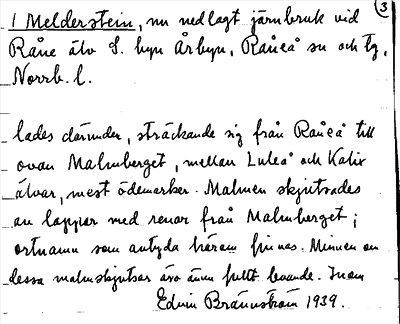 3
1 Melderstein, nu nedlagt järnbruk vid
Råne älv S. byn Årbyn, Råneå sn och tg,
Norrb. l.
lades därunder, sträckande sig från Råneå till
ovan Malmberget, mellan Luleå och Kalix
älvar, mest ödemarker. Malmen skjutsades
av lappar med renar från Malmberget;
ortnamn som antyda härom finnas. Minnen om
dessa malmskjutsar äro ännu fullt levande. Inom
Edvin Brännström 1939.